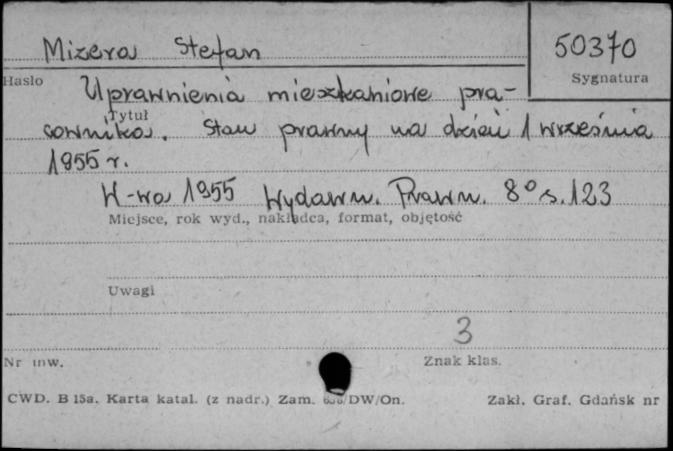 Mizera Stefan
50370
Hasło
Sygnatura
Uprawnienia mieszkaniowe pra-
Tytuł
cownika. Stan prawny na dzień 1 września
1955 r.
W-wa 1955 Wydawn. Prawn. 8° s. 123
Miejsce, rok wyd., nakładca, format, objętość
Uwagi
3
Nr inw.
Znak klas.
CWD. B 15a. Karta katal. (z nadr.) Zam. /DW/On. Zakł. Graf. Gdańsk nr